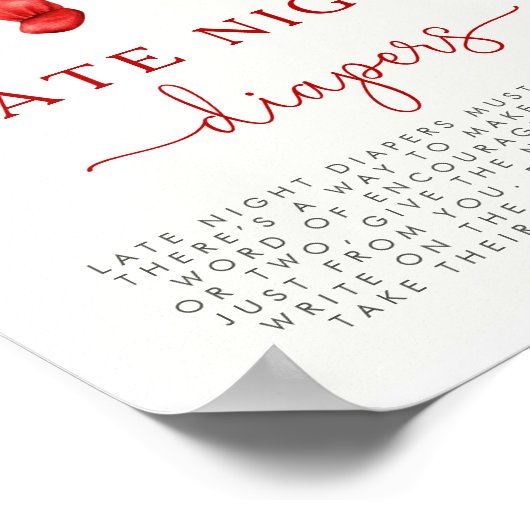 ATE NIG
diapers
LATE NIGHT DIAPERS MUST
THERE'S A WAY TO MAKE
WORD OF ENCOURAG
OR TWO, GIVE THE
JUST FROM YOU.
WRITE ON THE
TAKE THEIR